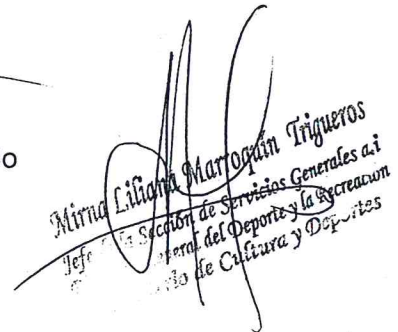 o
Mirna Liliana Marroquín Trigueros
Jefe de la Sección de Servicios Generales a.i
General del Deporte y la Recreación
de Cultura y Deportes